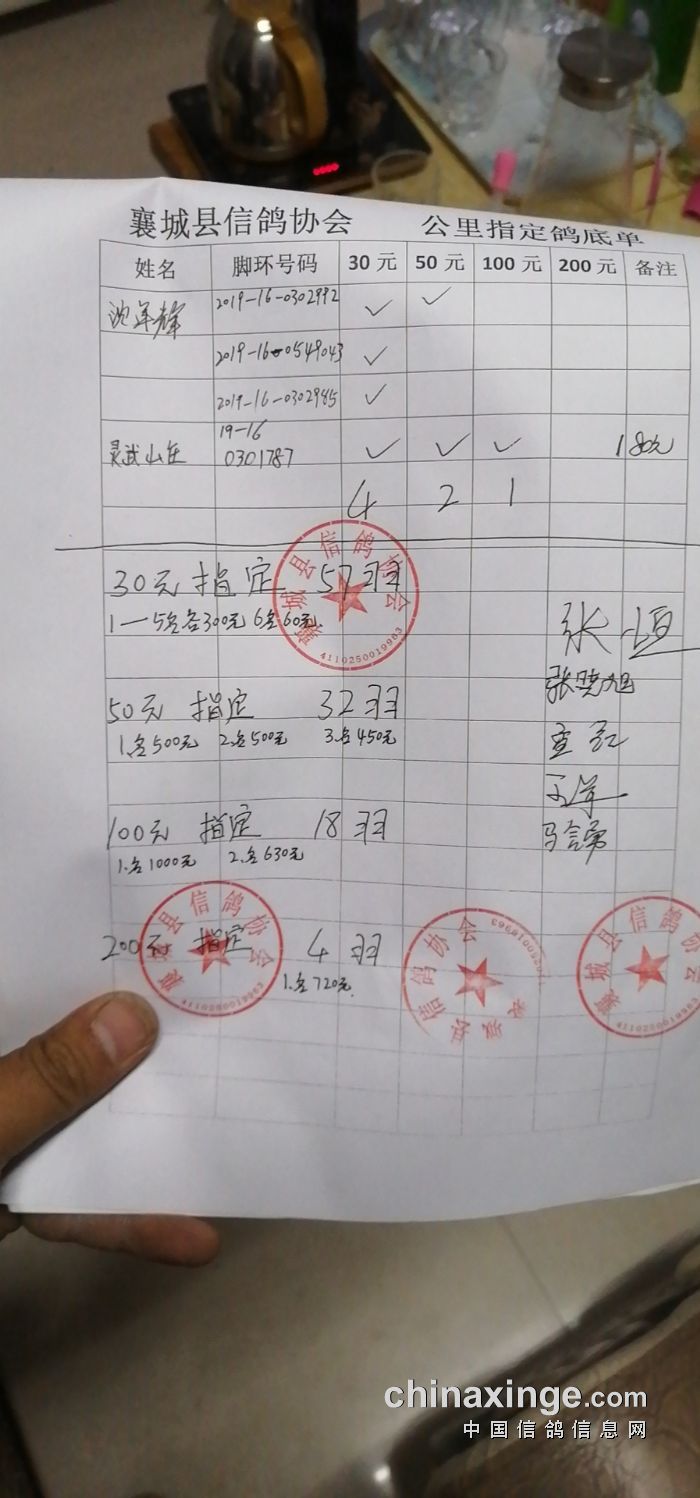 襄城县信鸽协会 公里指定鸽底单
姓名 脚环号码 30元 50元 100元 200元 备注
2019-16-0302992 ✓ ✓
2019-16-0549043 ✓
2019-16-0302985 ✓
19-16
灵武山庄 0301787 ✓ ✓ ✓ 180元
4 2 1
30元 指定 57羽
1—5名各300元 6名60元.
张恒
张晓旭
50元 指定 32羽
1.名500元 2.名500元 3.名450元
100元 指定 18羽
1.名1000元 2.名630元
200元 指定 4羽
1.名720元.
襄城县信鸽协会
4110250019963
襄城县信鸽协会
4110250019963
襄城县信鸽协会
4110250019963
襄城县信鸽协会
4110250019963
chinaxinge.com
中国信鸽信息网